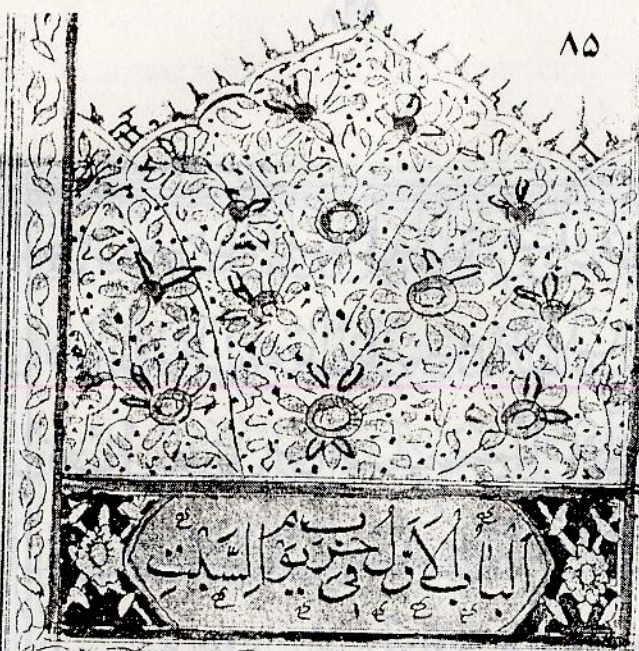 ٨۵
اَلبابُ الاَوَّلُ فِي حِزبِ يَومِ السَّبتِ